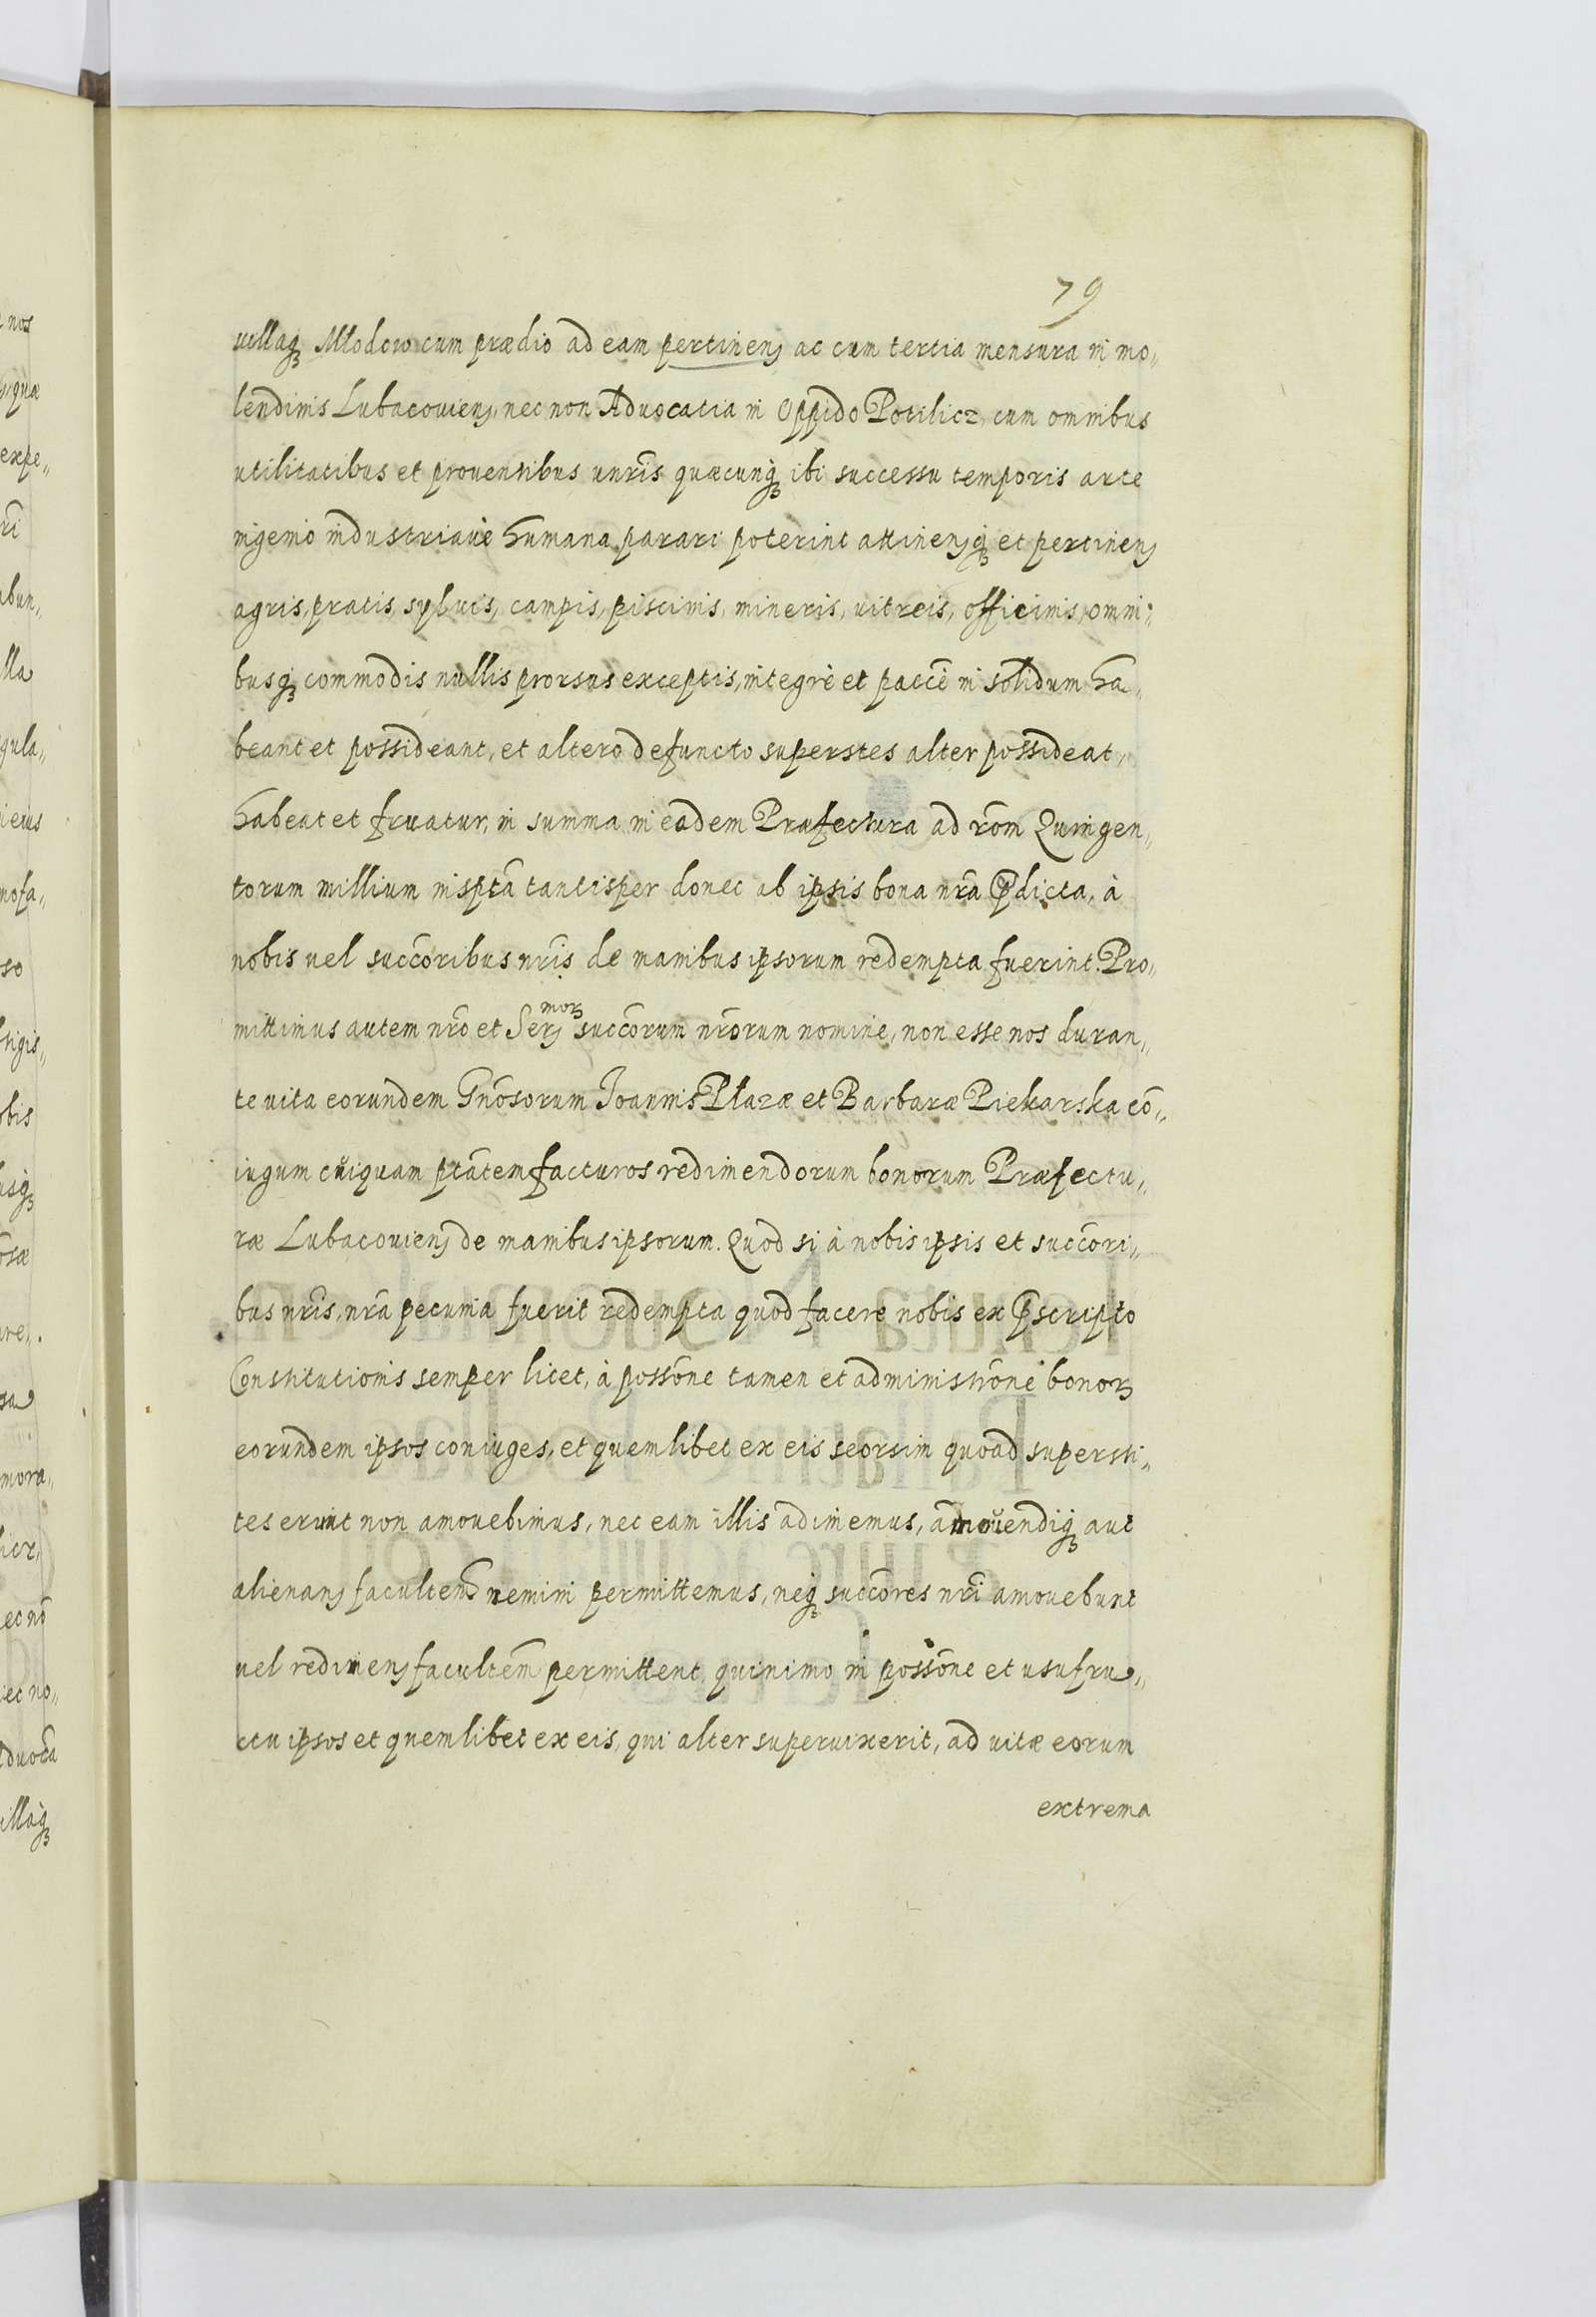 79
villaq3 Młodow cum prædio ad eam pertinenʒ ac cum tertia mensura in mo„
lendinis Lubacouienʒ, nec non Aduocatia in Oppido Potilicz, cum omnibus
utilitatibus et prouentibus unrīs quæcunq3 ibi successu temporis arte
ingenio industriauè humana parari poterint attinenʒq3 et pertinenʒ
agris, pratis, syluis, campis, piscinis, mineris, uitreis, officinis, omni„
busq3 commodis nullis prorsus exceptis, integrè et paccē in solidum ha„
beant et possideant, et altero defuncto superstes alter possideat,
habeat et fruatur, in summa in eadem Præfectura ad rōm Quingen„
torum millium insptā tantisper donec ab ipsis bona nrā pdicta, à
nobis uel succōribus nrīs de manibus ipsorum redempta fuerint. Pro„
mittimus autem nrō et Serʒ morʒ succōrum nrōrum nomine, non esse nos duran„
te uita eorundem Gnōsorum Joannis Płazæ et Barbaræ Piekarska cō„
iugum cŭiquam ptātem facturos redimendorum bonorum Præfectu„
ræ Lubacouienʒ de manibus ipsorum. Quod si à nobis ipsis et succōri„
bus nrīs, nrā pecunia fuerit redempta quod facere nobis ex pscripto
Constitutionis semper licet, à possōne tamen et administrōne bonorʒ
eorundem ipsos coniuges, et quemlibet ex eis seorsim quoad supersti„
tes erunt non amouebimus, nec eam illis adimemus, amouendiq3 aut
alienanʒ facultēm nemini permittemus, neq3 succōres nrī amouebunt
uel redimenʒ facultēm permittent, quinimo in possōne et usufru„
ctu ipsos et quemlibet ex eis, qui alter superuixerit, ad uitæ eorum
extrema